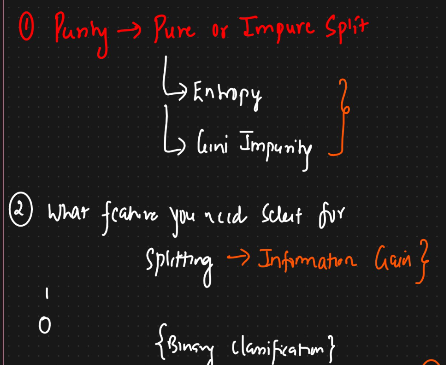 ① Purity → Pure or Impure Split
↳ Entropy
↳ Gini Impurity }
② What feature you need select for
Splitting → Information Gain }
1
0
{Binary Classification}